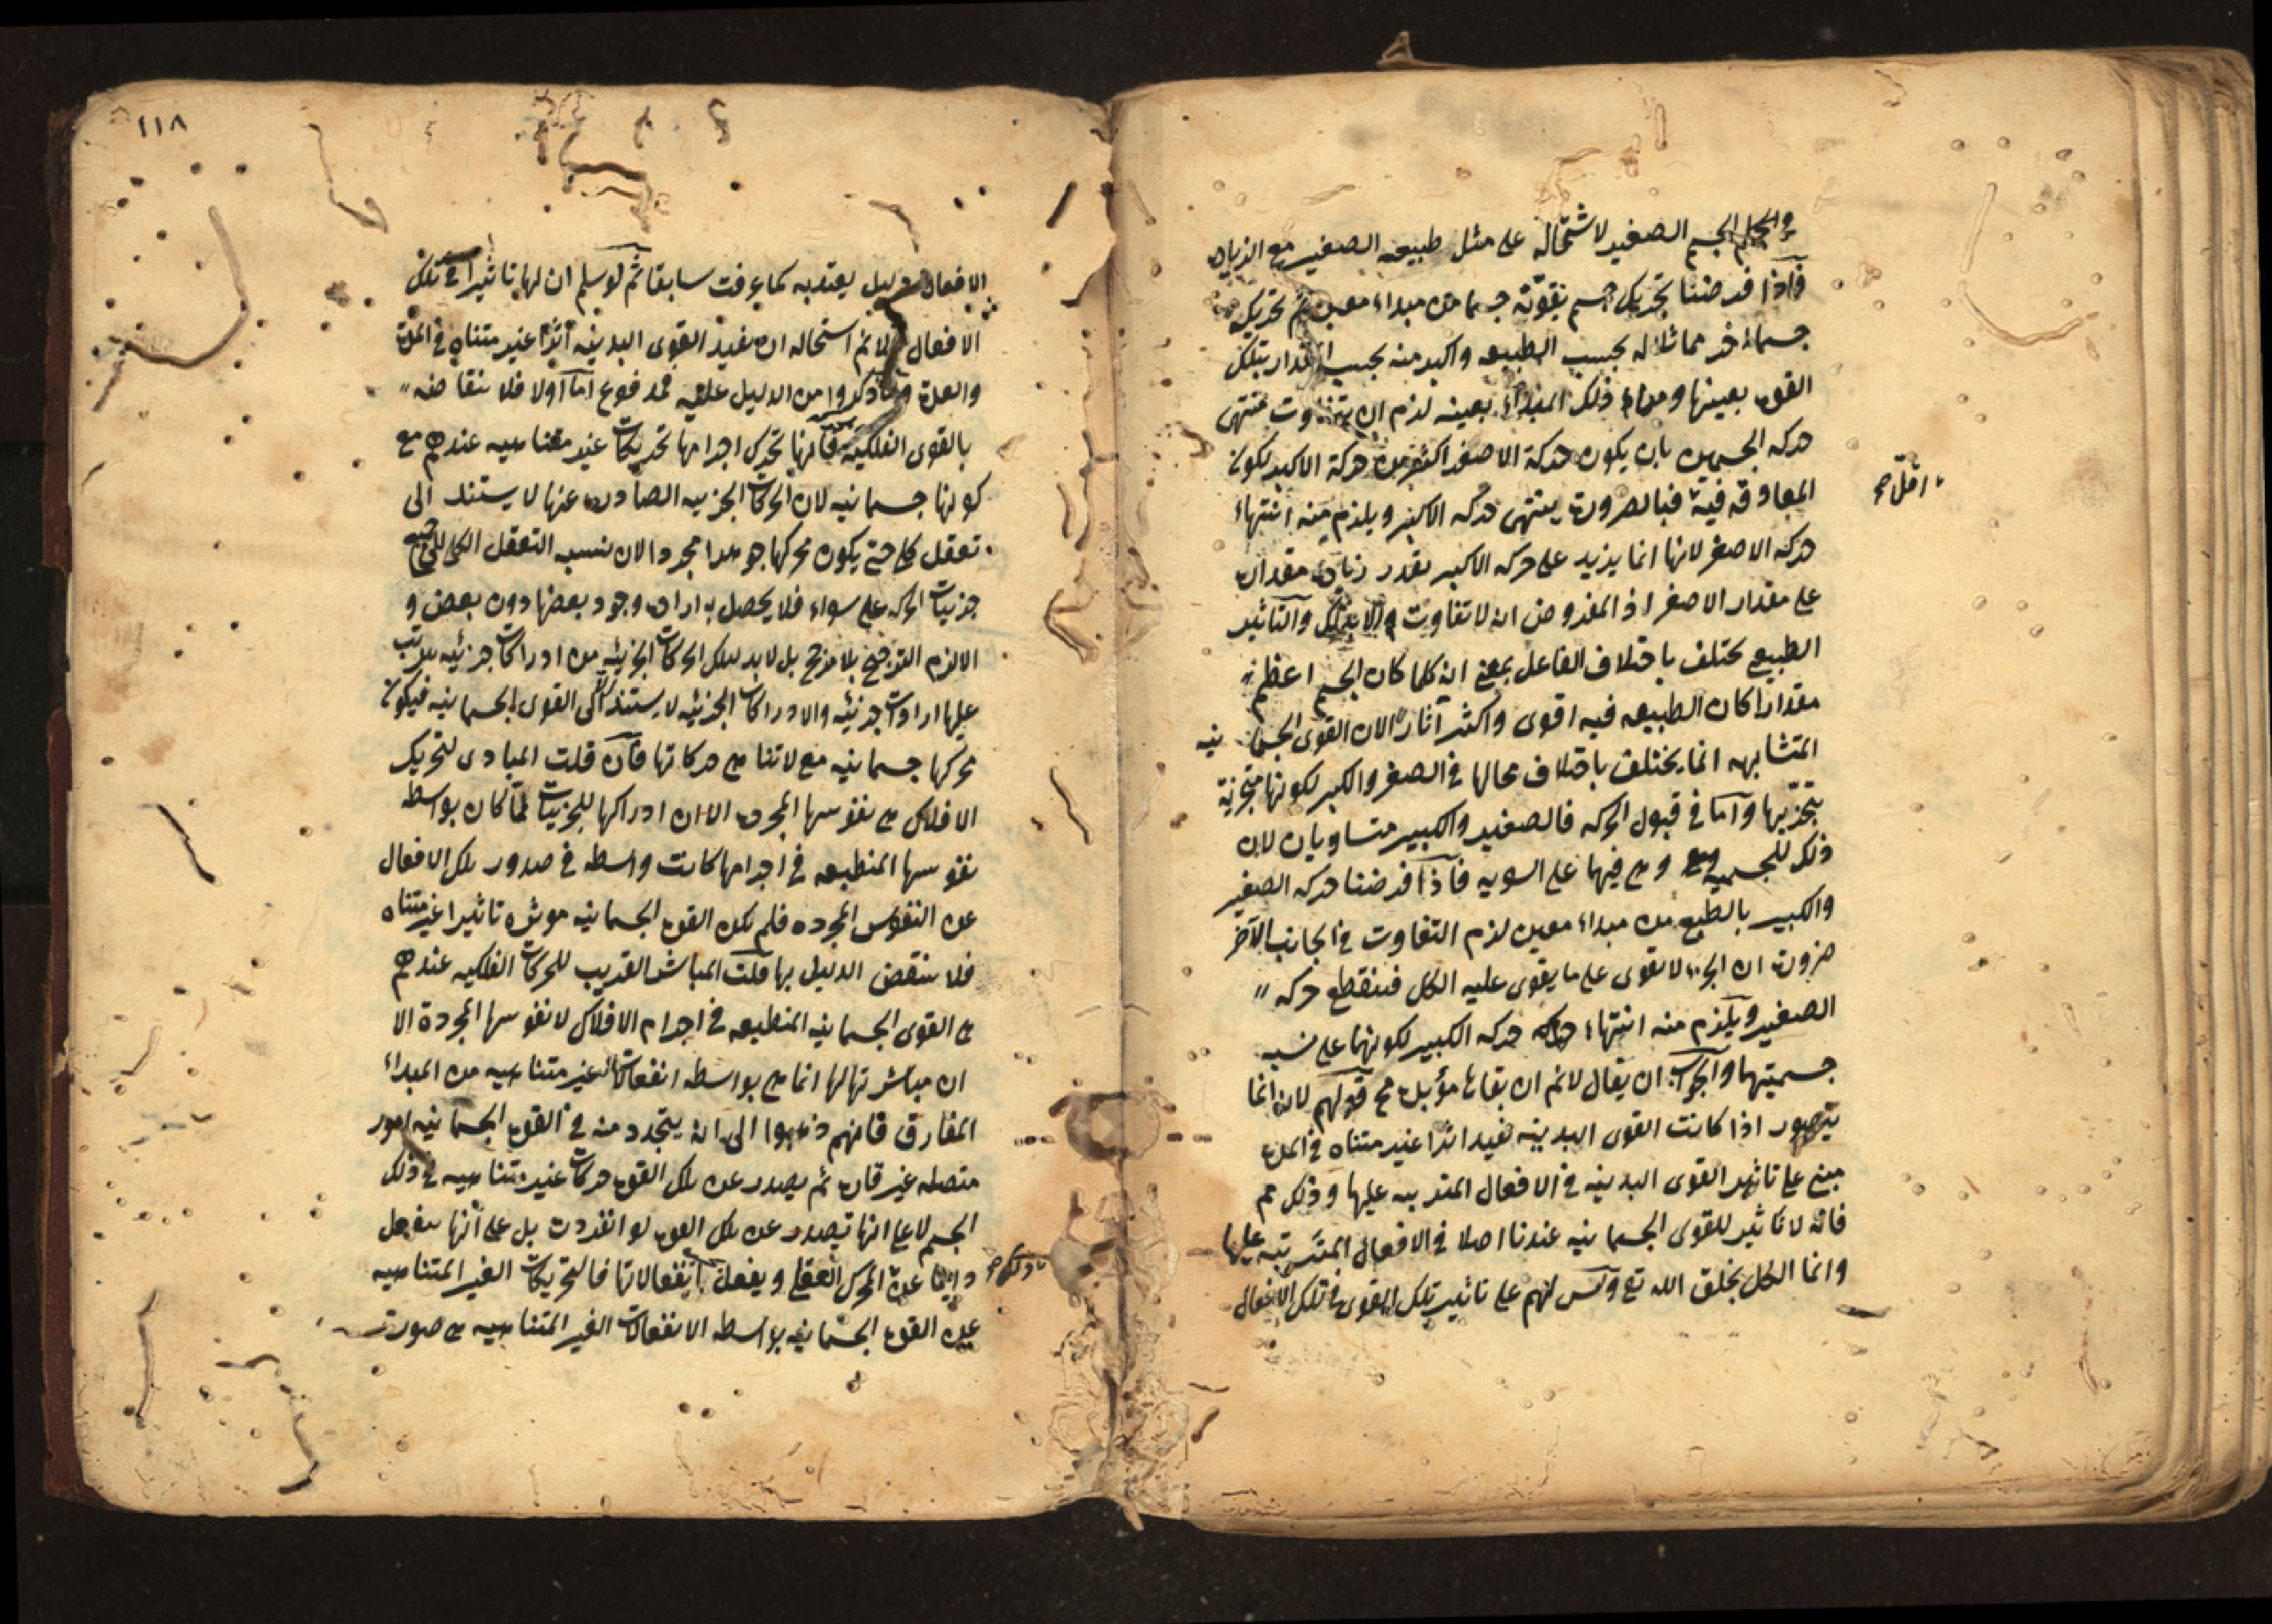 الجسم الصغير لاشتماله على مثل طبيعه الصغير مع الزياده
فاذا فرضنا تحريك جسم بقوته جسما من مبداء معين ثم تحريكه
جسما اخر مماثلا له بحسب الطبيعه واكبر منه بحسب المقدار بتلك
القوه بعينها ومن ذلك المبداء بعينه لزم ان يتفاوت منتهى
حركه الجسمين بان يكون حركة الاصغر اكثر من حركة الاكبر لكون
المعاوقه فيه فبالضروره ينتهى حركه الاكبر ويلزم منه انتهاء
اقل صح
حركه الاصغر لانها انما يزيد على حركه الاكبر بقدر زياده مقداره
على مقدار الاصغر اذ المفروض ان لا تفاوت الا بذلك والتاثير
الطبيعى يختلف باختلاف الفاعل بمعنى ان كلما كان الجسم اعظم
مقدارا كان الطبيعه فيه اقوى واكثر آثارا لان القوى الجسمانيه
المتشابهه انما يختلف باختلاف محالها فى الصغر والكبر لكونها متجزئة
بتجزيها وآما فى قبول الحركه فالصغير والكبير متساويان لان
ذلك للجسميه وهى فيهما على السويه فآذا فرضنا حركه الصغير
والكبير بالطبع من مبداء معين لزم التفاوت فى الجانب الآخر
ضرورة ان الجزء لا يقوى على ما يقوى عليه الكل فينقطع حركه
الصغير ويلزم منه انتهاء حركه الكبير لكونهما على نسبه
جسميتهما وآلجواب ان يقال لانم ان بقاءها مؤبده مح قولهم لانه انما
يتصور اذا كانت القوى البدنيه تفيد اثرا غير متناه فى المده
مبنى على تاثير القوى البدنيه فى الافعال المترتبه عليها وذلك مم
فانه لا تاثير للقوى الجسمانيه عندنا اصلا فى الافعال المترتبه عليها
وانما الكل بخلق الله تع وليس لهم على تاثير تلك القوى فى تلك الافعال
١١٨
الافعال دليل يعتد به كما عرفت سابقا ثم لو سلم ان لها تاثيرا فى تلك
الافعال فلانم استحاله ان يفيد القوى البدنيه اثرا غير متناه فى المدة
والعدة وما ذكروا من الدليل عليه فمدفوع اما آولا فلانتقاضه
بالقوى الفلكيه فانها تحرك اجرامها تحريكات غير متناهيه عندهم مع
كونها جسمانيه لان الحركات الجزيه الصادره عنها لا يستند الى
تعقل كلى حتى يكون محركها جوهرا مجردا لان نسبه التعقل الكلى الى جميع
جزييات الحركه على سواء فلا يحصل به اراده وجود بعضها دون بعض و
الا لزم الترجيح بلا مرجح بل لابد لتلك الحركات الجزئيه من ادراكات جزئيه يترتب
عليها ارادات جزئيه والادراكات الجزئيه لا يستند الا الى القوى الجسمانيه فيكون
محركها جسمانيه مع لا تناهى حركاتها فآن قلت المبادى لتحريك
الافلاك هى نفوسها المجرده الا ان ادراكها للجزييات لما كان بواسطه
نفوسها المنطبعه فى اجرامها كانت واسطه فى صدور تلك الافعال
عن النفوس المجرده فلم يكن القوه الجسمانيه موثره تاثيرا غير متناه
فلا ينتقض الدليل بها قلت المباشر القريب للحركات الفلكيه عندهم
هى القوى الجسمانيه المنطبعه فى اجرام الافلاك لا نفوسها المجردة الا
ان مباشرتها لها انما هى بواسطه انفعالات غير متناهيه من المبداء
المفارق فانهم ذهبوا الى انه يتجدد منه فى القوه الجسمانيه امور
متصله غير قاره ثم يصدر عن تلك القوه حركات غير متناهيه فى ذلك
الجسم لا على انها تصدر عن تلك القوه لو انفردت بل على انها ينفعل
دايما عن المحرك العقلى ويفعل بانفعالاتها فالتحريكات الغير المتناهيه
عن القوه الجسمانيه بواسطه الانفعالات الغير المتناهيه هى صورة